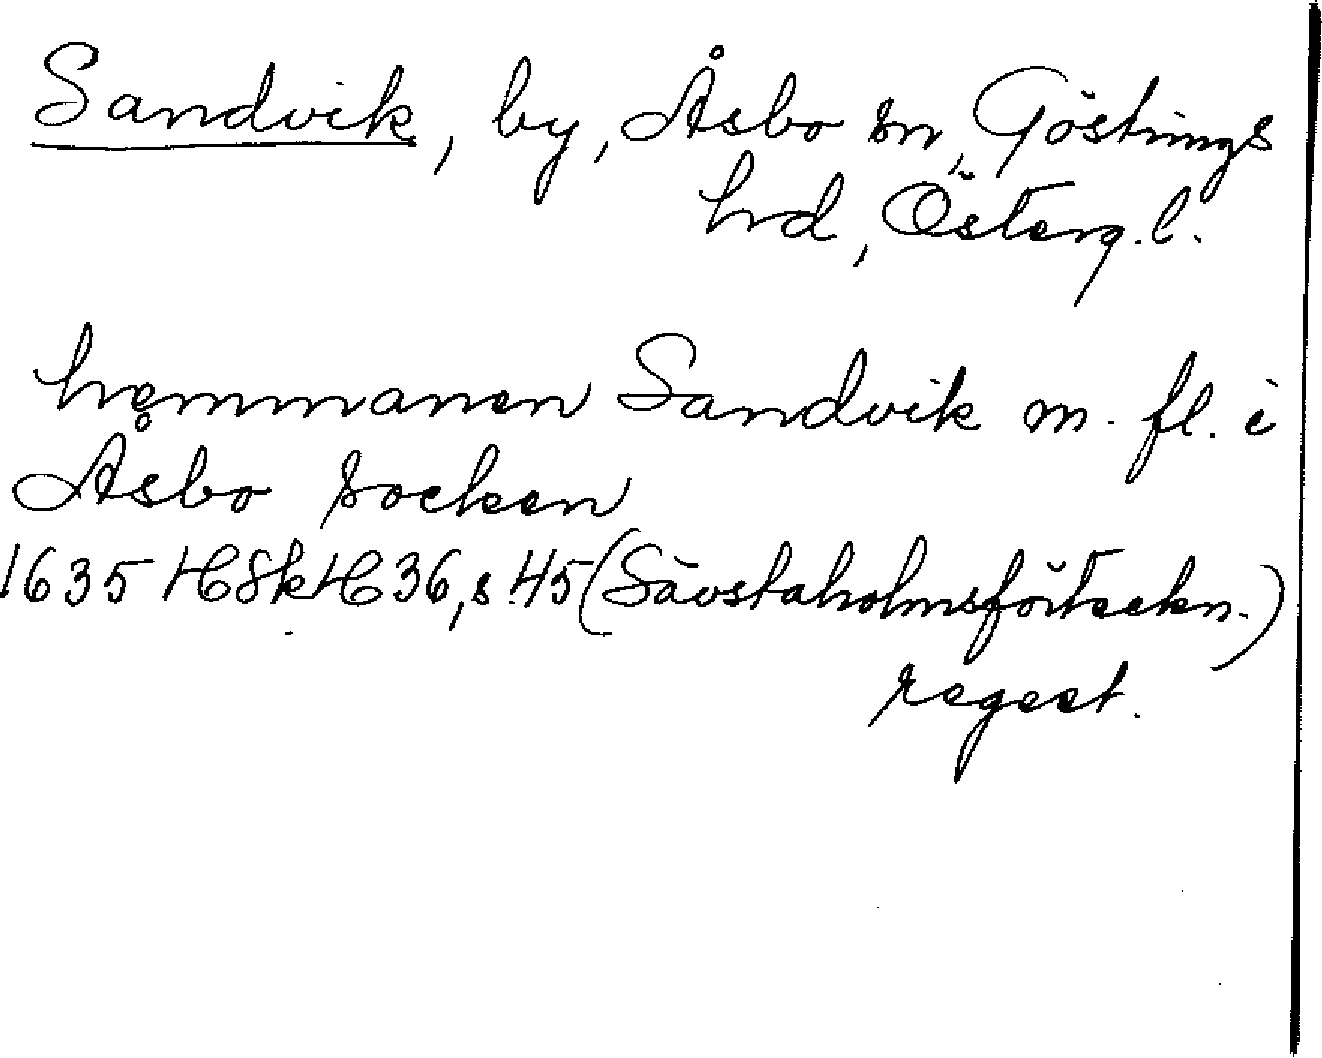 Sandvik, by, Åsbo sn, Göstrings
hrd, Österg. l.
hemmanen Sandvik m. fl. i
Åsbo socken
1635 HSkH 36, s. 45 (Sävstaholmsförteckn.)
regest.